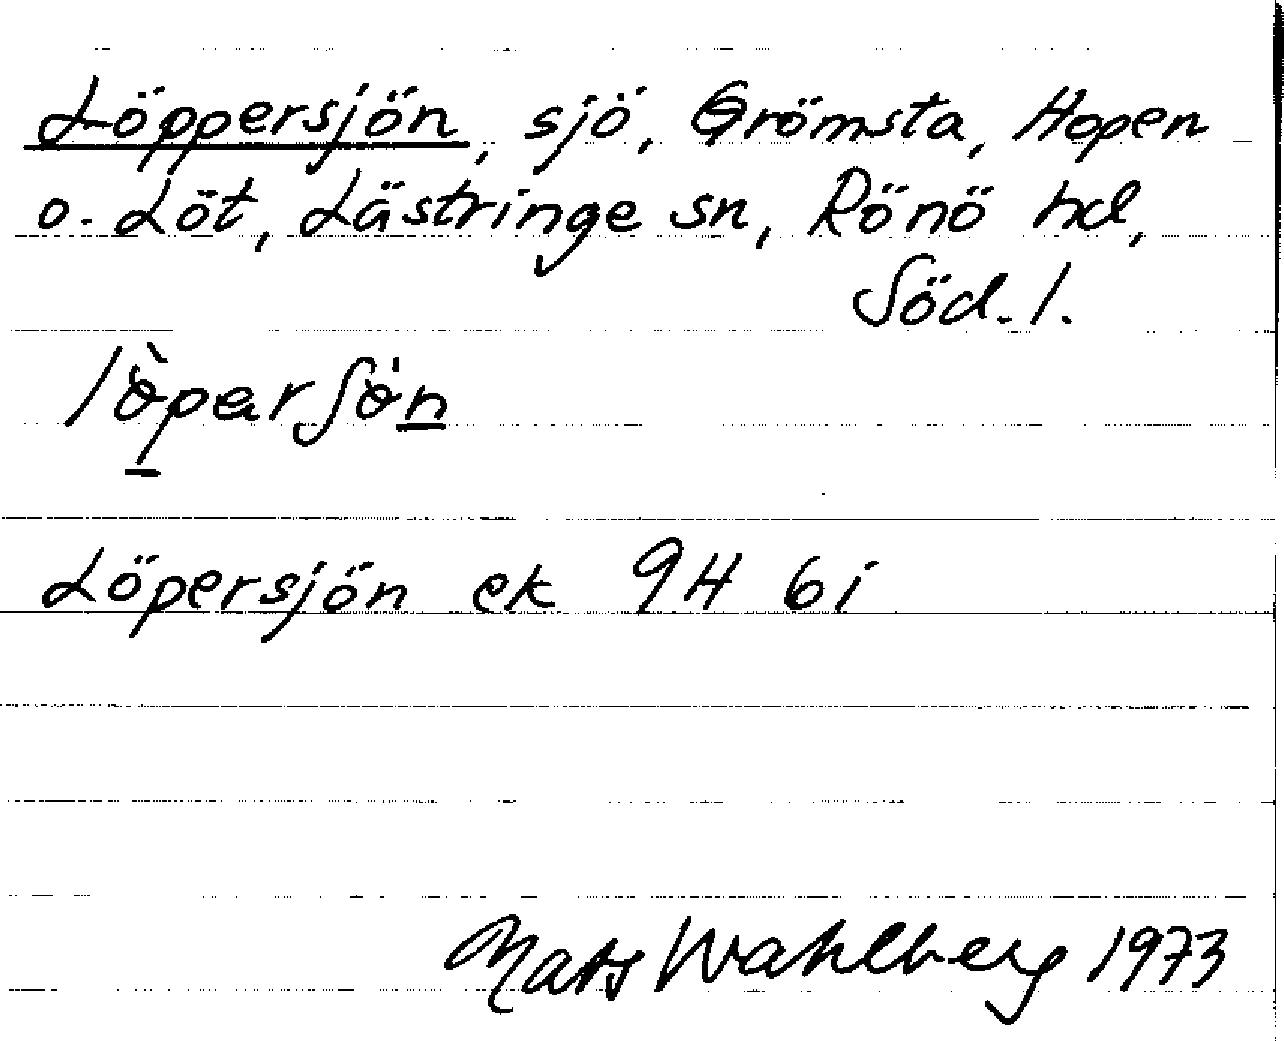 Löppersjön, sjö, Grömsta, Hopen
o. Löt, Lästringe sn, Rönö hd,
Söd. l.
lö̀parʃö́n
Löpersjön ek 9H 6i
Mats Wahlberg 1973